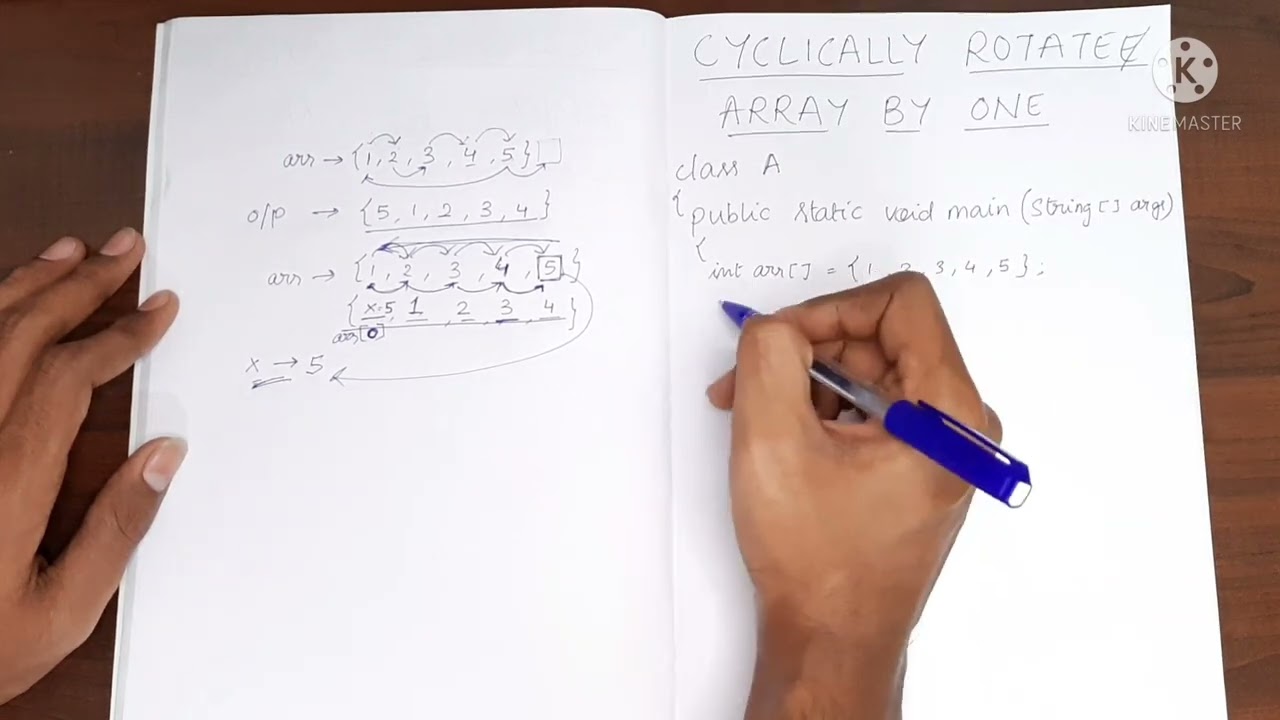 arr → {1, 2, 3, 4, 5}
o/p → {5, 1, 2, 3, 4}
arr → {1, 2, 3, 4, 5}
{x=5, 1, 2, 3, 4}
arr[0]
x → 5
CYCLICALLY ROTATE
ARRAY BY ONE
class A
{ public static void main (String [] args)
{
int arr[] = {1, 2, 3, 4, 5};
K
KINEMASTER